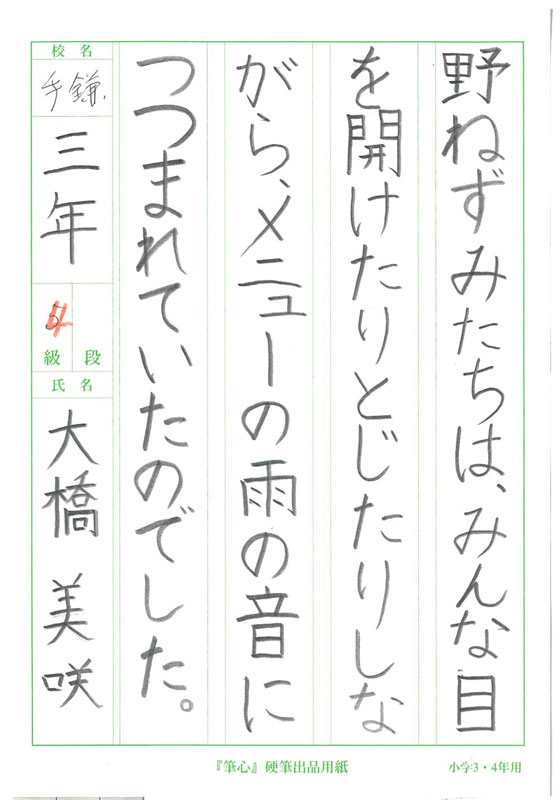 野ねずみたちは、みんな目
を開けたりとじたりしな
がら、メニューの雨の音に
つつまれていたのでした。
校名
手鎌
三年
級 段
氏名
大橋 美咲
『筆心』硬筆出品用紙
小学3・4年用